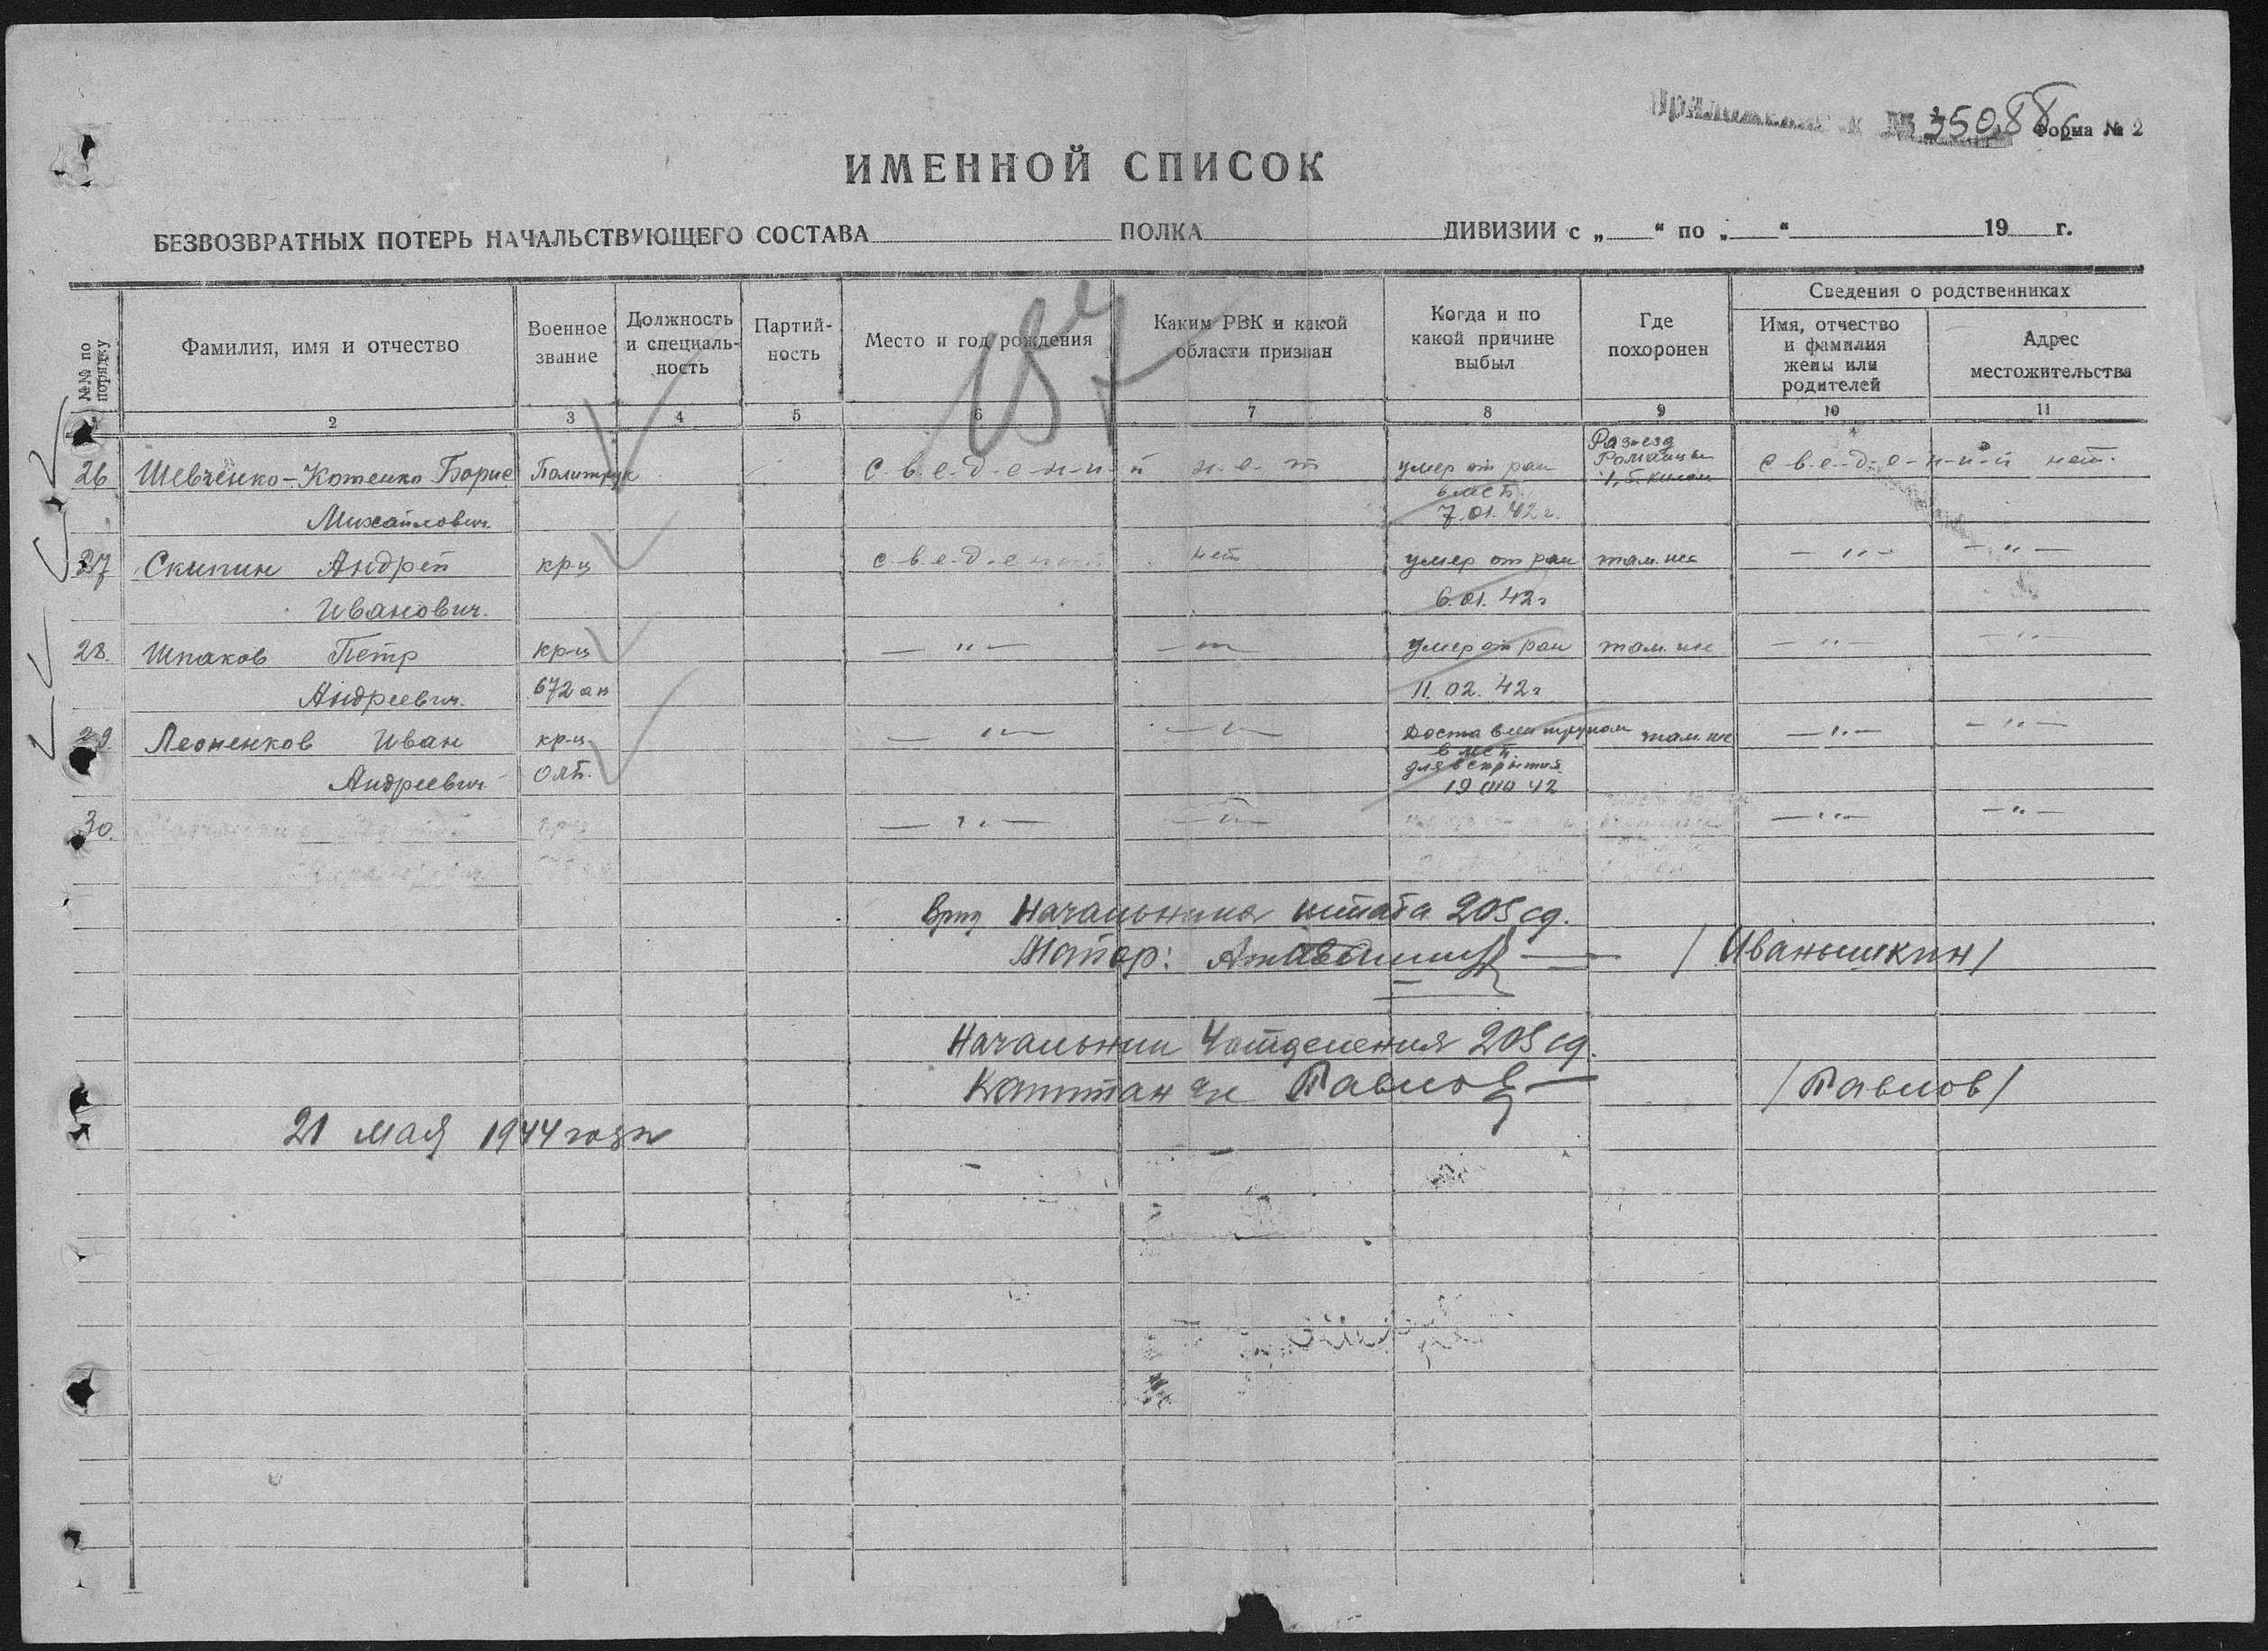 Приложение к № 35088с Форма № 2
ИМЕННОЙ СПИСОК
БЕЗВОЗВРАТНЫХ ПОТЕРЬ НАЧАЛЬСТВУЮЩЕГО СОСТАВА ПОЛКА ДИВИЗИИ с „ “ по „ “ 19 г.
187
№№ по порядку
Фамилия, имя и отчество
Военное звание
Должность и специаль-ность
Партий-ность
Место и год рождения
Каким РВК и какой области призван
Когда и по какой причине выбыл
Где похоронен
Сведения о родственниках
Имя, отчество и фамилия жены или родителей
Адрес местожительства
2 3 4 5 6 7 8 9 10 11
26 Шевченко-Котенко Борис Политрук с-в-е-д-е-н-и-й н-е-т умер от ран Разъезд Романцы 1,5 килом с-в-е-д-е-н-и-й нет.
Михайлович. в мсб. 7.01.42г.
27 Скипин Андрей кр-ц с-в-е-д-ений нет умер от ран там-же — " — — " —
Иванович. 6.01.42г
28. Шпаков Петр кр-ц — " — — " — умер от ран там-же — " — — " —
Андреевич. 672 ап 11.02.42г
29. Леоненков Иван кр-ц — " — — " — Доставлен трупом там-же — " — — " —
в мсб.
Андреевич для вскрытия
19 42
30. — " — — " — — " — — " —
Врид Начальника штаба 205 сд.
Майор: / Иванышкин /
Начальник 4 отделения 205 сд.
Капитан Павлов / Павлов /
21 мая 1944 года